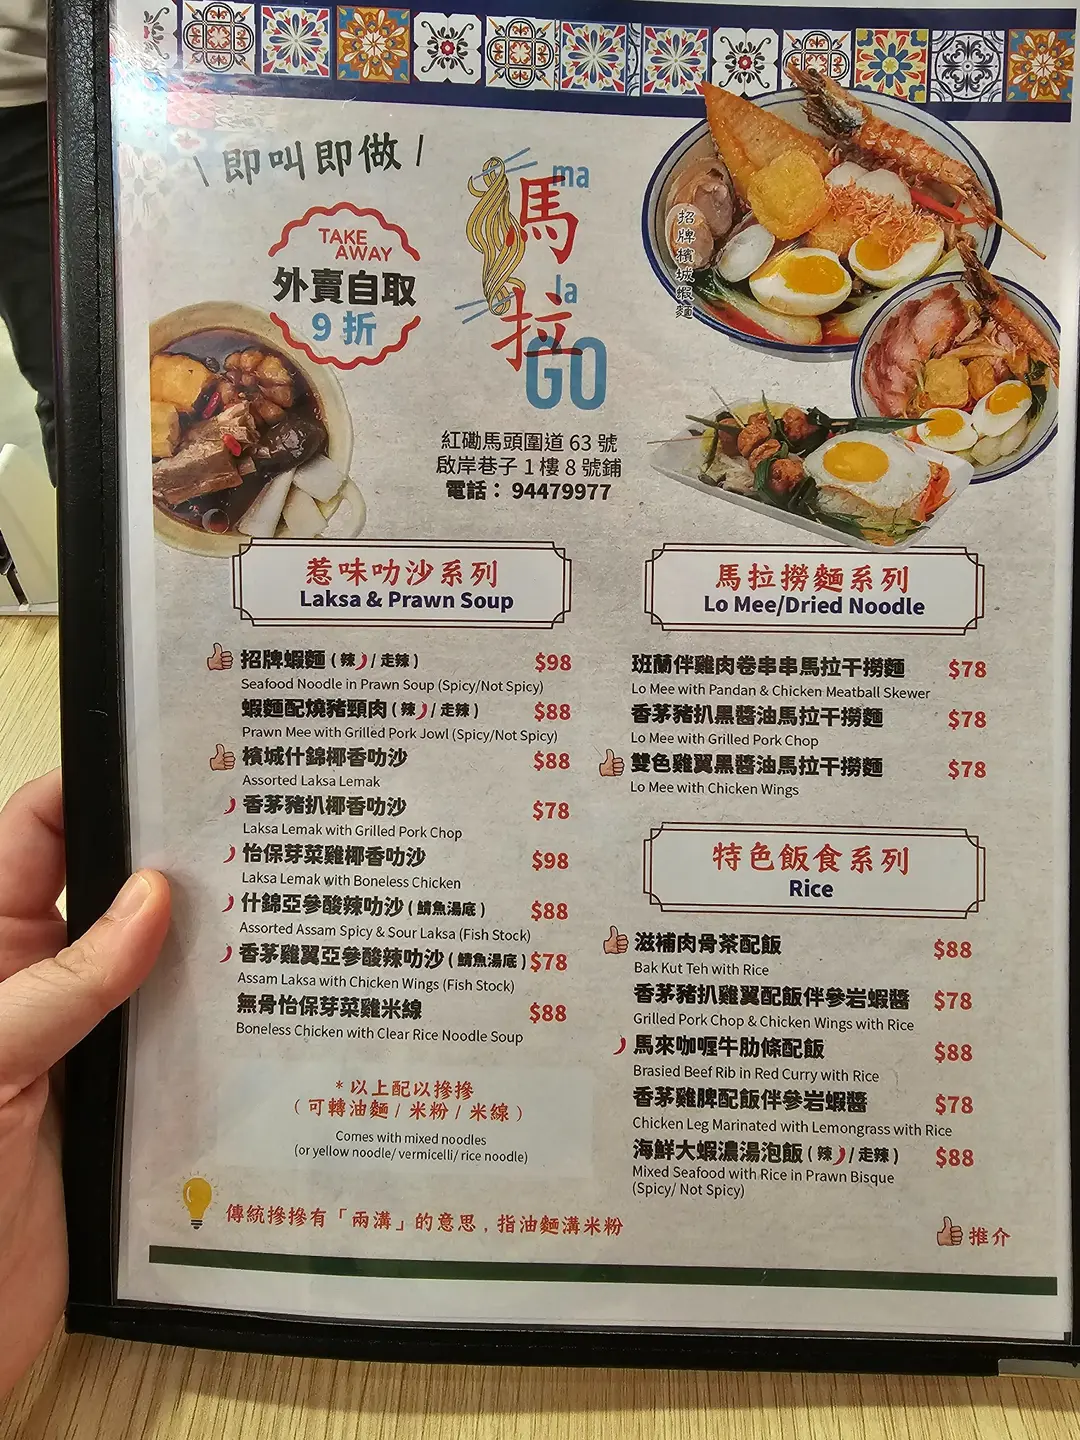 \ 即叫即做 /
TAKE
AWAY
外賣自取
9 折
馬 ma
拉 la
GO
招牌檳城蝦麵
紅磡馬頭圍道 63 號
啟岸巷子 1 樓 8 號鋪
電話： 94479977
惹味叻沙系列
Laksa & Prawn Soup
招牌蝦麵 ( 辣 / 走辣 ) $98
Seafood Noodle in Prawn Soup (Spicy/Not Spicy)
蝦麵配燒豬頸肉 ( 辣 / 走辣 ) $88
Prawn Mee with Grilled Pork Jowl (Spicy/Not Spicy)
檳城什錦椰香叻沙 $88
Assorted Laksa Lemak
香茅豬扒椰香叻沙 $78
Laksa Lemak with Grilled Pork Chop
怡保芽菜雞椰香叻沙 $98
Laksa Lemak with Boneless Chicken
什錦亞參酸辣叻沙 ( 鯖魚湯底 ) $88
Assorted Assam Spicy & Sour Laksa (Fish Stock)
香茅雞翼亞參酸辣叻沙 ( 鯖魚湯底 ) $78
Assam Laksa with Chicken Wings (Fish Stock)
無骨怡保芽菜雞米線 $88
Boneless Chicken with Clear Rice Noodle Soup
* 以上配以摻摻
( 可轉油麵 / 米粉 / 米線 )
Comes with mixed noodles
(or yellow noodle/ vermicelli/ rice noodle)
傳統摻摻有「兩溝」的意思，指油麵溝米粉
馬拉撈麵系列
Lo Mee/Dried Noodle
班蘭伴雞肉卷串串馬拉干撈麵 $78
Lo Mee with Pandan & Chicken Meatball Skewer
香茅豬扒黑醬油馬拉干撈麵 $78
Lo Mee with Grilled Pork Chop
雙色雞翼黑醬油馬拉干撈麵 $78
Lo Mee with Chicken Wings
特色飯食系列
Rice
滋補肉骨茶配飯 $88
Bak Kut Teh with Rice
香茅豬扒雞翼配飯伴參岩蝦醬 $78
Grilled Pork Chop & Chicken Wings with Rice
馬來咖喱牛肋條配飯 $88
Brasied Beef Rib in Red Curry with Rice
香茅雞脾配飯伴參岩蝦醬 $78
Chicken Leg Marinated with Lemongrass with Rice
海鮮大蝦濃湯泡飯 ( 辣 / 走辣 ) $88
Mixed Seafood with Rice in Prawn Bisque
(Spicy/ Not Spicy)
推介